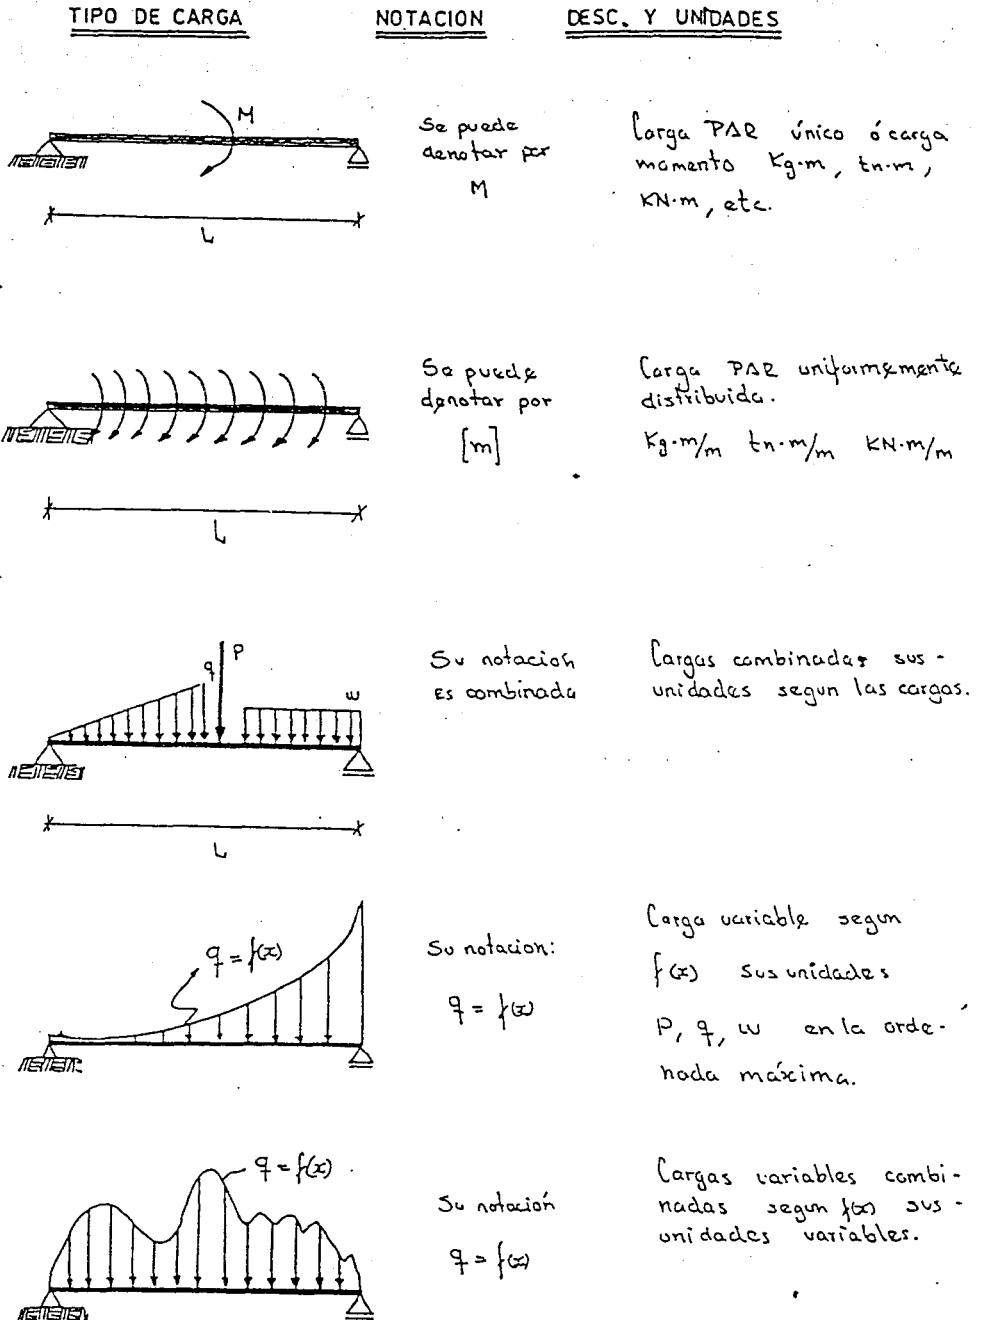 TIPO DE CARGA NOTACION DESC. Y UNIDADES
M
L
Se puede
denotar por
M
Carga PAR único ó carga
momento Kg·m, tn·m,
KN·m, etc.
L
Se puede
denotar por
[m]
Carga PAR uniformemente
distribuida.
Kg·m/m tn·m/m KN·m/m
q P w
L
Su notacion
Es combinada
Cargas combinadas sus-
unidades segun las cargas.
q = f(x)
Su notacion:
q = f(x)
Carga variable segun
f(x) sus unidades
P, q, w en la orde-
nada máxima.
q = f(x)
Su notación
q = f(x)
Cargas variables combi-
nadas segun f(x) sus-
unidades variables.